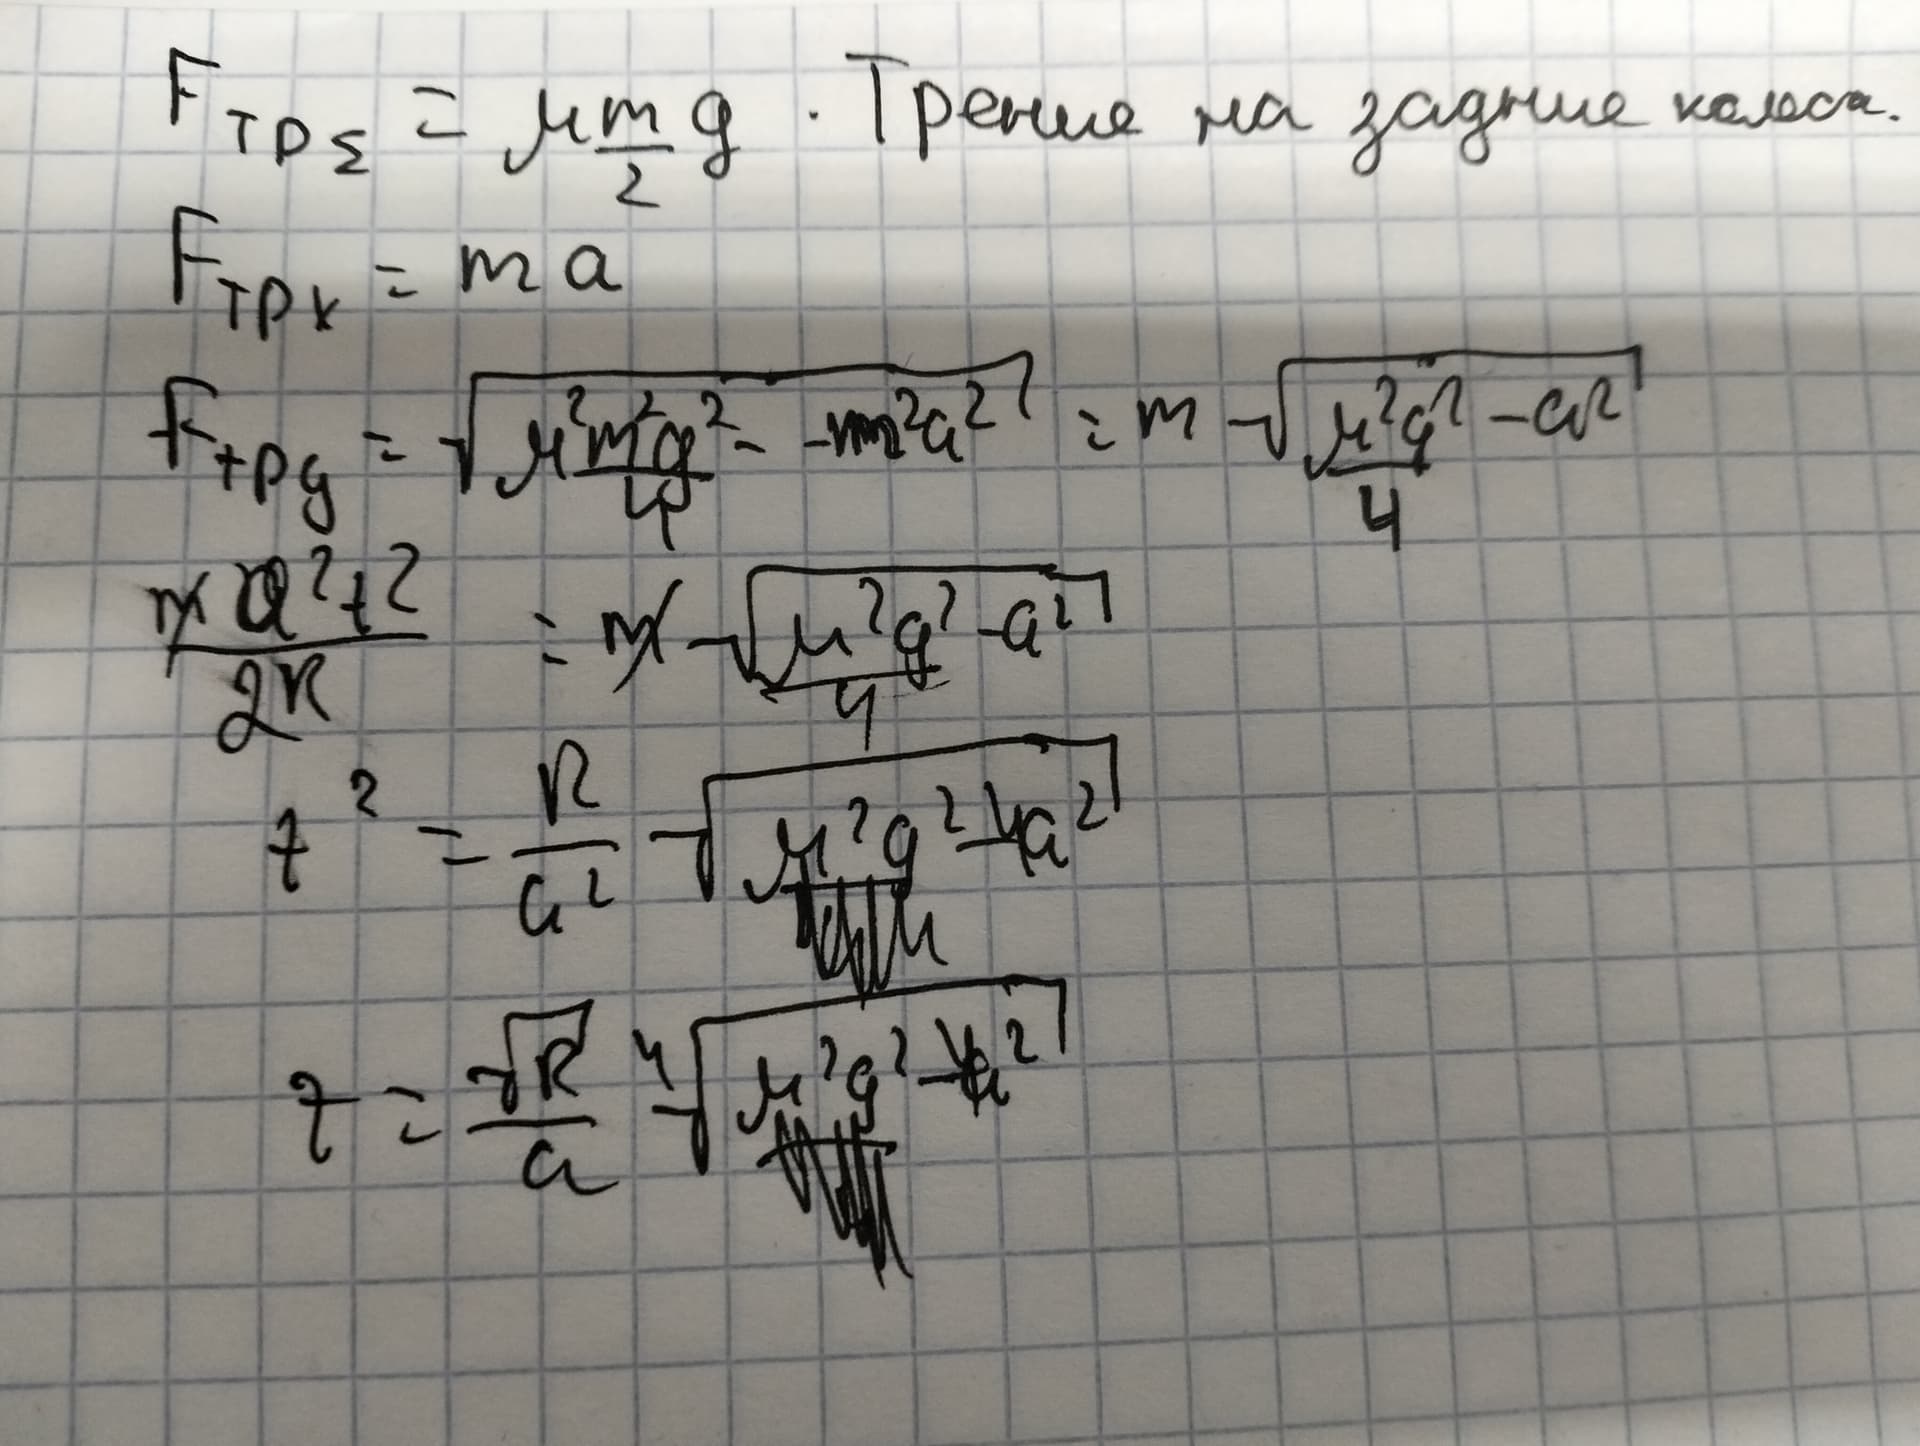 F_трΣ = μ m/2 g . Трение на задние колеса.
F_трx = m a
F_трy = √(μ²m²g²/4 - -m²a²) = m √(μ²g²/4 - a²)
m a²t²/2R = m √(μ²g²/4 - a²)
t² = R/a² √(μ²g² - 4a²)
t = √R/a ⁴√(μ²g² - 4a²)